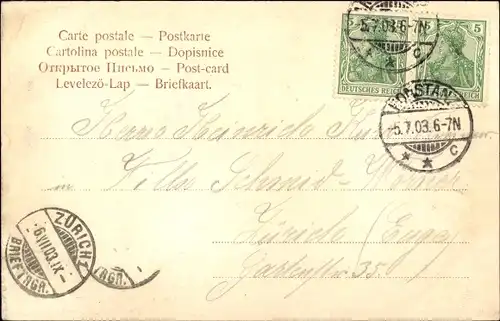 Carte postale — Postkarte
Cartolina postale — Dopisnice
Открытое Письмо — Post-card
Levelező-Lap — Briefkaart.
5
DEUTSCHES REICH
REICH
5.7.03.6-7N
c
KONSTAN
5.7.03.6-7N
c
Herrn Heinrich
Villa Schmid-
Zürich (Enge)
Gartenstr 35.
ZÜRICH 1
6.VII.03.IX-
BRIEFTRGR.
TRGR.